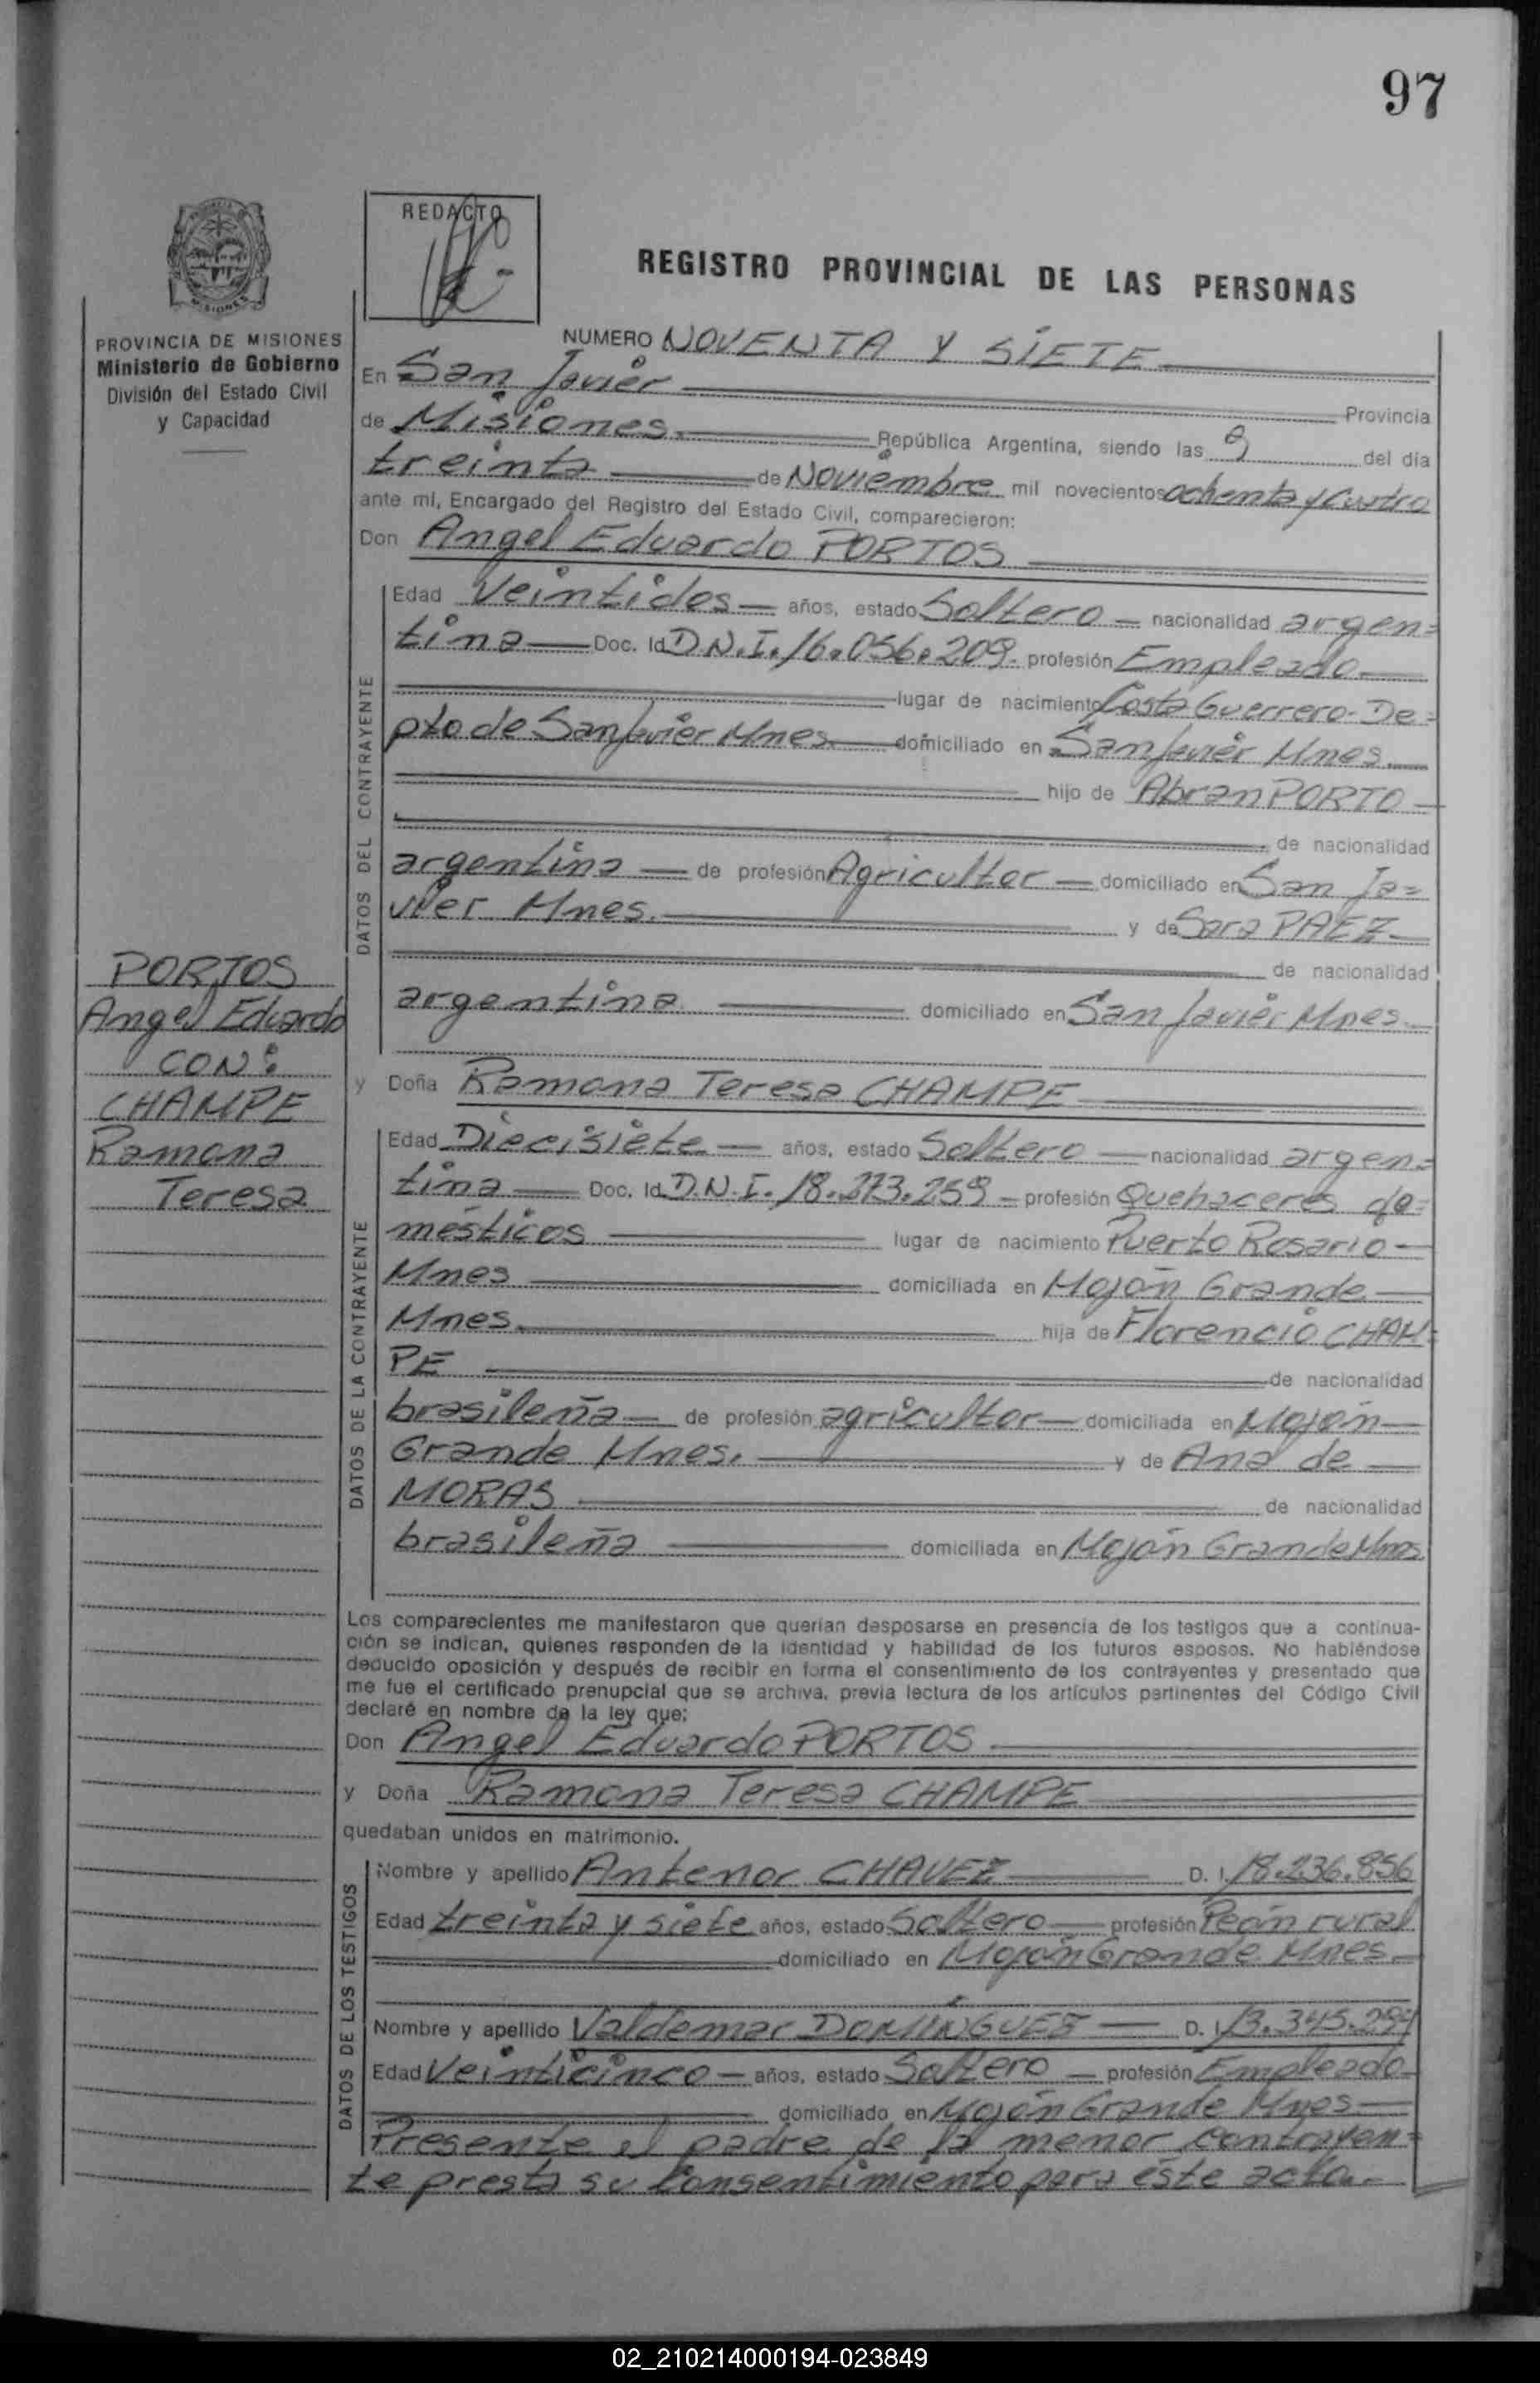 97
REDACTO
REGISTRO PROVINCIAL DE LAS PERSONAS
PROVINCIA DE MISIONES
Ministerio de Gobierno
División del Estado Civil
y Capacidad
NUMERO NOVENTA Y SIETE
En San Javier
Provincia
de Misiones. República Argentina, siendo las 9 del día
treinta de Noviembre mil novecientos ochenta y cuatro
ante mí, Encargado del Registro del Estado Civil, comparecieron:
Don Angel Eduardo PORTOS
DATOS DEL CONTRAYENTE
Edad Veintidos años, estado Soltero nacionalidad argen=
tina Doc. Id D.N.I. 16.056.209. profesión Empleado
lugar de nacimiento Costa Guerrero-De=
pto de San Javier Mnes domiciliado en San Javier Mnes.
hijo de Abran PORTO
de nacionalidad
argentina de profesión Agricultor domiciliado en San Ja=
vier Mnes. y de Sara PAEZ
de nacionalidad
argentina domiciliado en San Javier Mnes.
PORTOS
Angel Eduardo
CON:
CHAMPE
Ramona
Teresa
y Doña Ramona Teresa CHAMPE
DATOS DE LA CONTRAYENTE
Edad Diecisiete años, estado Soltero nacionalidad argen=
tina Doc. Id. D.N.I. 18.273.259 profesión Quehaceres do=
mésticos lugar de nacimiento Puerto Rosario
Mnes domiciliada en Mojón Grande
Mnes. hija de Florencio CHAM=
PE de nacionalidad
brasileña de profesión agricultor domiciliada en Mojón
Grande Mnes. y de Ana de
MORAS de nacionalidad
brasileña domiciliada en Mojón Grande Mnes
Los comparecientes me manifestaron que querían desposarse en presencia de los testigos que a continua-
ción se indican, quienes responden de la identidad y habilidad de los futuros esposos. No habiéndose
deducido oposición y después de recibir en forma el consentimiento de los contrayentes y presentado que
me fue el certificado prenupcial que se archiva, previa lectura de los artículos pertinentes del Código Civil
declaré en nombre de la ley que:
Don Angel Eduardo PORTOS
y Doña Ramona Teresa CHAMPE
quedaban unidos en matrimonio.
DATOS DE LOS TESTIGOS
Nombre y apellido Antenor CHAVEZ D. I. 18.236.856
Edad treinta y siete años, estado Soltero profesión Peón rural
domiciliado en Mojón Grande Mnes.
Nombre y apellido Valdemar DOMÍNGUEZ D. I. 13.345.294
Edad Veinticinco años, estado Soltero profesión Empleado
domiciliado en Mojón Grande Mnes
Presente el padre de la menor contrayen=
te presta su consentimiento para éste acto.-
02_210214000194-023849